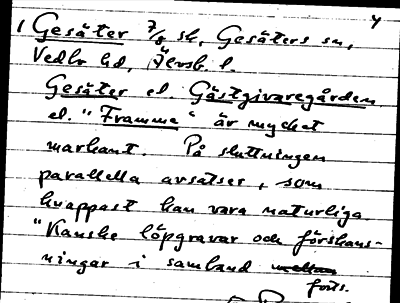 4
1 Gesäter 7/8 sk, Gesäters sn,
Vedbo hd, Älvsb. l.
Gesäter el. Gästgivaregården
el. "Framme" är mycket
markant. På sluttningen
parallella avsatser, som
knappast kan vara naturliga.
"Kanske löpgravar och förskans-
ningar i samband mellan
forts.